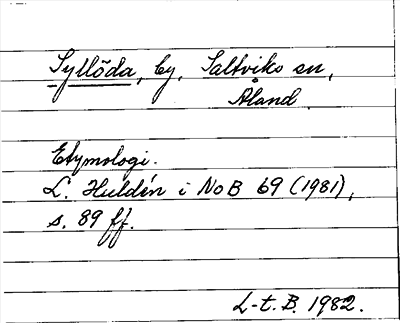 Syllöda, by, Saltviks sn,
Åland.
Etymologi.
L. Huldén i NoB 69 (1981),
s. 89 ff.
L-t. B. 1982.